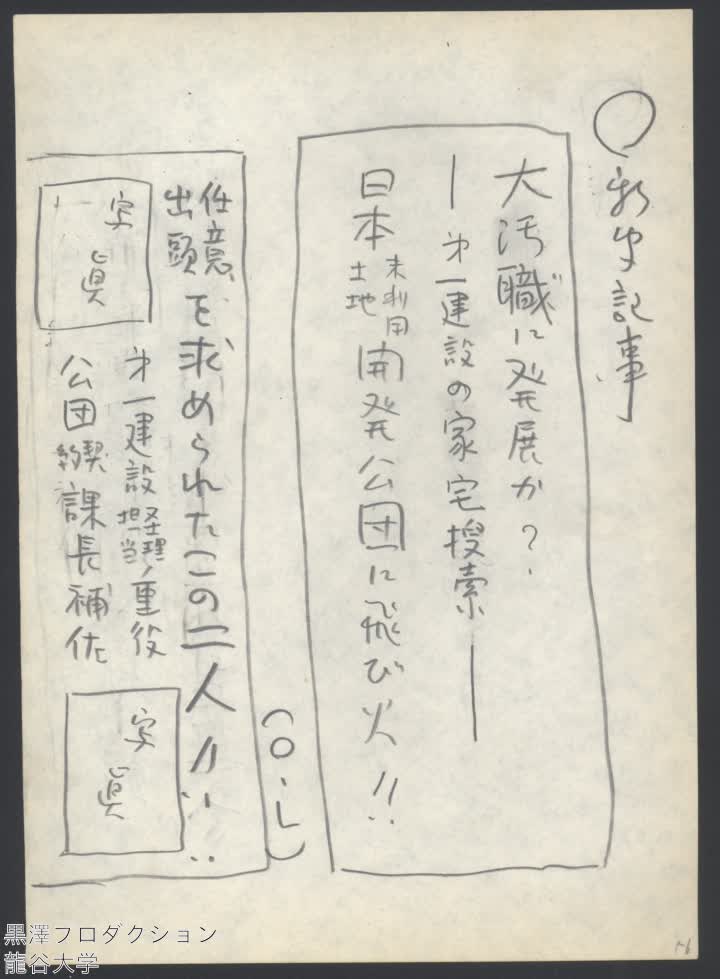 ○新聞記事
大汚職に発展か?
―才一建設の家宅捜索―
日本未利用土地開発公団に飛び火!!
(O・L)
任意出頭を求められたこの二人!!
写眞
才一建設経理担当重役
公団契約課長補佐
写眞
黒澤プロダクション
龍谷大学